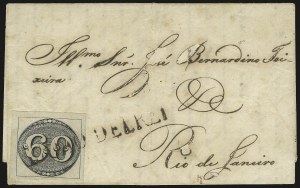 Illmo Snr. José Bernardino Tei-
xeira
D D
60
DELREI
Rio de Janeiro